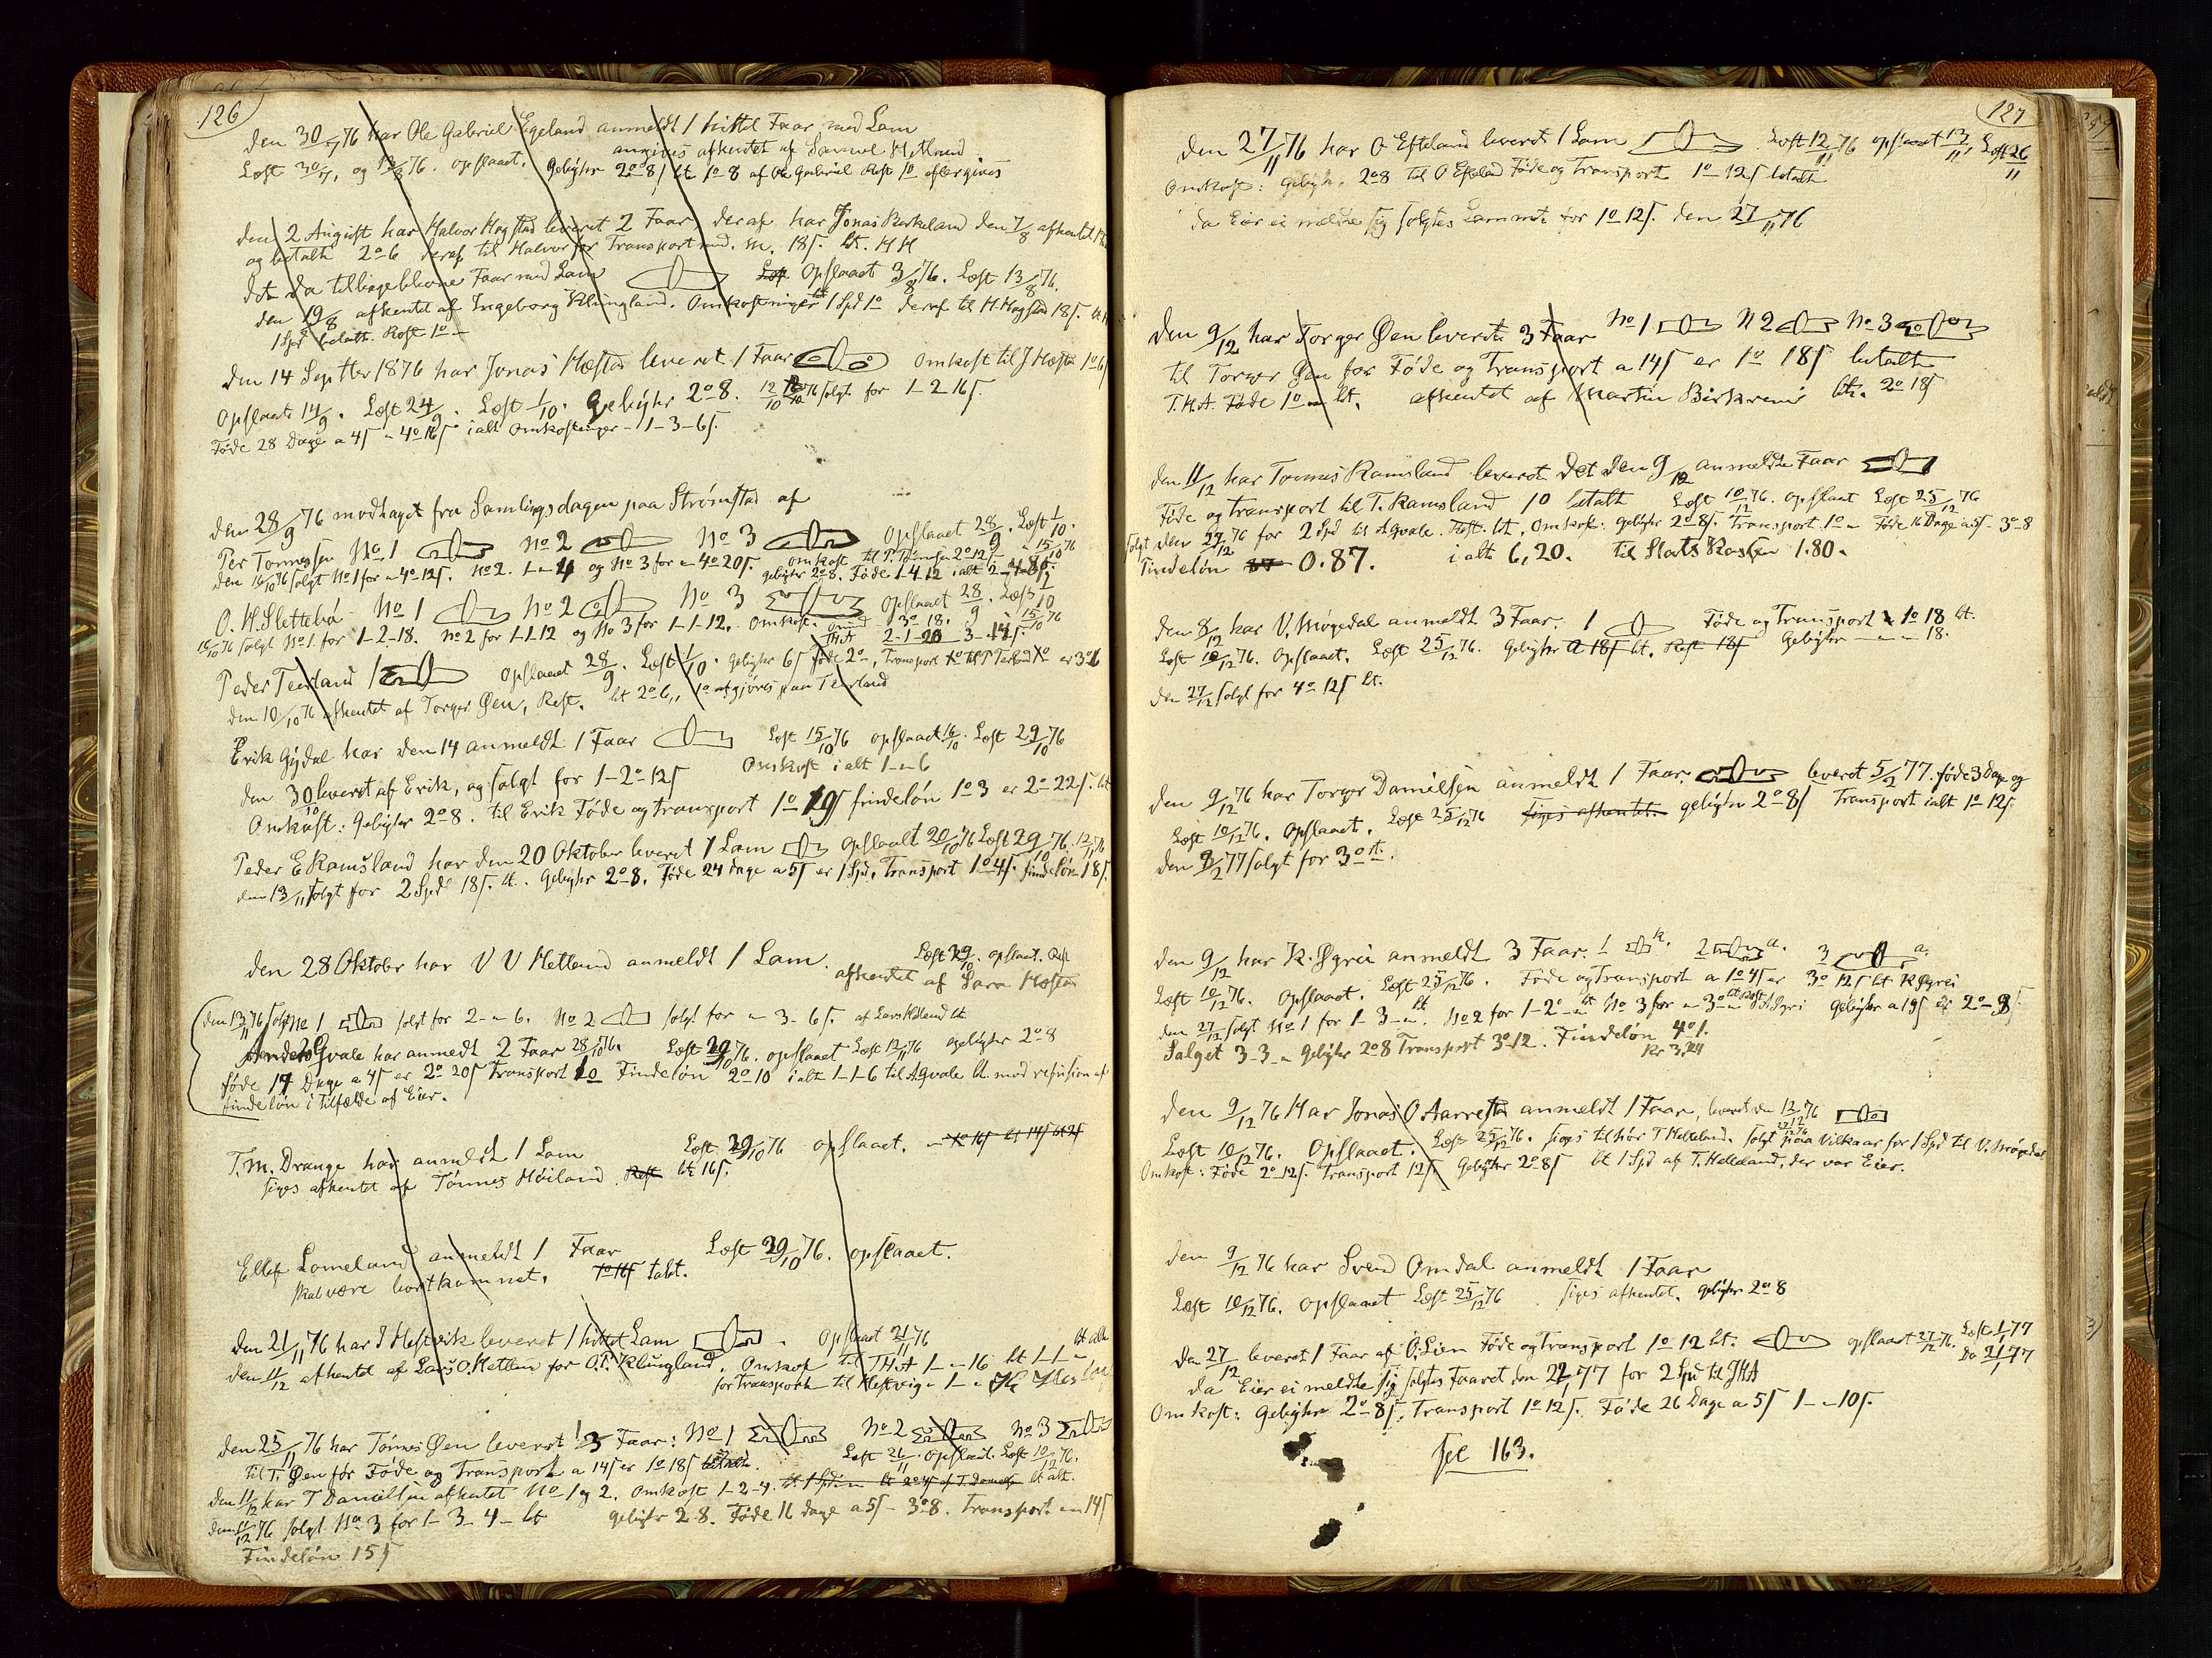 126
den 30/7 76 har Ole Gabriel Egeland anmeldt 1 hittet Faar med Lam
angives afhentet af Samuel Hetland
Læst 30/7, og 13/8 76. opslaaet. Gebyhr 2º 8/ bt 1º 8 af Ole Gabriel Rest 1º eftergives
den 2 August har Halvor Hogstad leveret 2 Faar, deraf har Jonas Birkeland den 7/8 afhentet
og betalt 2º-6 deraf til Halvor for Transport med. m. 18/. bt. H H
det da tilbageblevne Faar med Lam opslaaet 3/8 76. Læst 13/8 76.
den 19/8 afhentet af Ingeborg Klungland. Omkostninger 1 Spd 1º deraf til H. Hogstad 18/.
1 Spd betalt. Rest 1º –
den 14 Septber 1876 har Jonas Mæstad leveret 1 Faar omkost til J Mæstad
Opslaaet 14/9. Læst 24/9. Læst 1/10. Gebyhr 2º 8. 76 solgt for 1-2-16/.
Føde 28 Dage a 4/ - 4º 16/ ialt Omkostninger - 1-3-6/.
den 28/9 76 modtaget fra Samlingsdagen paa Strømstad af
Per Tønnessen No. 1 No 2 No 3 Opslaaet 28/9. Læst 1/10.
den 16/10 76 solgt No 1 for - 4º 12/. No 2. og No 3 for - 4º 20/. omkost til P. Tønnesen 2º 12/
gebyhr 2º 8. Føde 1-4-12 ialt
O. H. Slettebø No 1 No 2 No 3 opslaaet 28/9. Læst 1/10
16/10 76 solgt No 1. for 1-2-18. No 2 for 1-1-12 og No 3 for 1-1-12. Omkost.
Peder Terland 1 opslaaet 28/9. Læst 1/10. gebyhr 6/ føde 2º –, Transport
den 10/10 76 afhentet af Torger Øen, Rest. bt 2º 6,, 1º afgjøres paa Terland
Erik Gydal har den 14 anmeldt 1 Faar Læst 15/10 76 opslaaet 16/10. Læst 29/10 76
den 30/10 leveret af Erik, og solgt for 1-2º-12/ Omkost ialt 1-"-6
Omkost: Gebyhr 2º 8. til Erik Føde og transport 1º 19/ findeløn 1º 3 er 2º 22/. bt
Peder E Ramsland har den 20 Oktober leveret 1 Lam opslaaet 20/10 76 Læst 29/10 76. 12/11 76
den 13/11 solgt for 2 Spd 18/. bt. Gebyhr 2º 8, Føde 24 dage a 5/ er 1 Spd, Transport 1º 4/. findeløn 18/.
den 28 Oktober har V V Hetland anmeldt 1 Lam. Læst 29/10. opslaaet.
afhentet af Lars Mæstad
den 13/11 76 solgt No 1 solgt for 2-"-6. No 2 solgt for "-3-6/.
Anders Qvale har anmedt 2 Faar 28/10 76. Læst 29/10 76. opslaaet Læst 12/11 76 gebyhr 2º 8
føde 14 Dage a 4/ er 2º 20/ Transport 1º Findeløn 2º 10 ialt 1-1-6 til A Qvale bt. mod refusion af
findeløn i Tilfælde af Eier.
T. M. Drange har anmeldt 1 Lam Læst 29/10 76 opslaaet.
siges afhentet af Tønnes Høiland. Rest bt 16/.
Ellef Lomeland anmeldt 1 Faar Læst 29/10 76. opslaaet.
skal være bortkommet. tabt.
den 21/11 76 har J Hestvik leveret 1 hittet Lam. opslaaet 21/11 76
den 11/12 afhentet af Lars O. Hetland for O. T. Klungland. Omkost til T H A 1-"-16 bt 1-1-"
for Transport til Hestvig
den 25/11 76 har Tønnes Øen leveret 3 Faar: No 1 No 2 No 3
til T. Øen for Føde og Transport a 14/ er 1º 18/ betalt. Læst 26/11. opslaaet. Læst 10/12 76.
den 11/12 har T Danielsen afhentet No 1 og 2. omkost 1-2-4. bt alt.
den 11/12 76 solgt No 3 for 1-3-4- bt gebyhr 2-8. Føde 16 dage a 5/ - 3º 8. Transport - 14/
Findeløn 15/
127
den 27/11 76 har O Efteland leveret 1 Lam. Læst 12/11 76 opslaaet 13/11, Læst 26/11
Omkost: Gebyhr. 2º 8 til O Efteland Føde og Transport 1º 12/ betalt
da Eier ei meldte sig solgtes Lammet for 1º 12/. den 27/11 76
den 9/12 har Torger Øen leveret 3 Faar No 1 N 2 No 3
til Torger Øen for Føde og Transport a 14/ er 1º 18/ betalt
T.H.A. Føde 1º - bt. afhentet af Martin Birkrem bt. 2º 18/
den 11/12 har Tønnes Ramsland leveret det den 9/12 anmeldte Faar
Føde og transport til T. Ramsland 1º betalt Læst 10/12 76. opslaaet Læst 25/12 76
solgt den 27/12 76 for 2 Spd til A Qvale. Rest. bt. Omkost: gebyhr 2º 8/. Transport. 1º - Føde 16 Dage a 5/ - 3º-8
Findeløn 0.87. ialt 6,20. til Stats Kassen 1.80.
den 8/12 har V. Møgedal anmeldt 3 Faar. 1 Føde og Transport 1º 18 bt.
Læst 10/12 76. Opslaaet. Læst 25/12 76. Gebyhr a 18/ bt. Rest 18/ Gebyhr - - - 18.
den 27/12 solgt for 4º 12/ bt.
den 9/12 76 har Torger Danielsen anmeldt 1 Faar. leveret 5/2 77. føde 3 Dage og
Læst 10/12 76. Opslaaet. Læst 25/12 76 siges afhentet. gebyhr 2º 8/ Transport ialt 1º 12/.
den 8/2 77 solgt for 3 ort.
den 9/12 har K. Øgrei anmeldt 3 Faar. 1 k. 2 a. 3 a.
Læst 10/12 76. Opslaaet. Læst 25/12 76. Føde og Transport a 1º 4/ er 3º 12/ bt K Øgrei
den 27/12 solgt No 1 for 1-3-" bt. No 2 for 1-2º-" bt No 3 for "-3º-" Gebyhr a 19/
Salget 3-3-" Gebyhr 2º 8 Transport 3º 12. Findeløn 4º 1.
Kr 3,24
den 9/12 76 Har Jonas O Aarrestad anmeldt 1 Faar, leveret den 12/12 76
Læst 10/12 76. Opslaaet. Læst 25/12 76. siges tilhør T Helleland. solgt paa Vilkaar for 1 Spd til V. Møgedal
Omkost: Føde 2º-12/. Transport 12/ Gebyhr 2º 8/ bt 1 Spd af T. Helleland, der var Eier.
den 9/12 76 har Svend Omdal anmeldt 1 Faar
Læst 10/12 76. Opslaaet Læst 25/12 76 siges afhentet. gebyhr 2º 8
den 27/12 leveret 1 Faar af O. Lien Føde og Transport 1º 12 bt. opslaaet 27/12 76. Læst 1/1 77
Do 21/1 77
da Eier ei meldte sig solgtes Faaret den 22/1 77 for 2 Spd til JHA
Omkost: Gebyhr 2º 8/. Transport 1º 12/. Føde 26 Dage a 5/ 1-"-10/.
See 163.